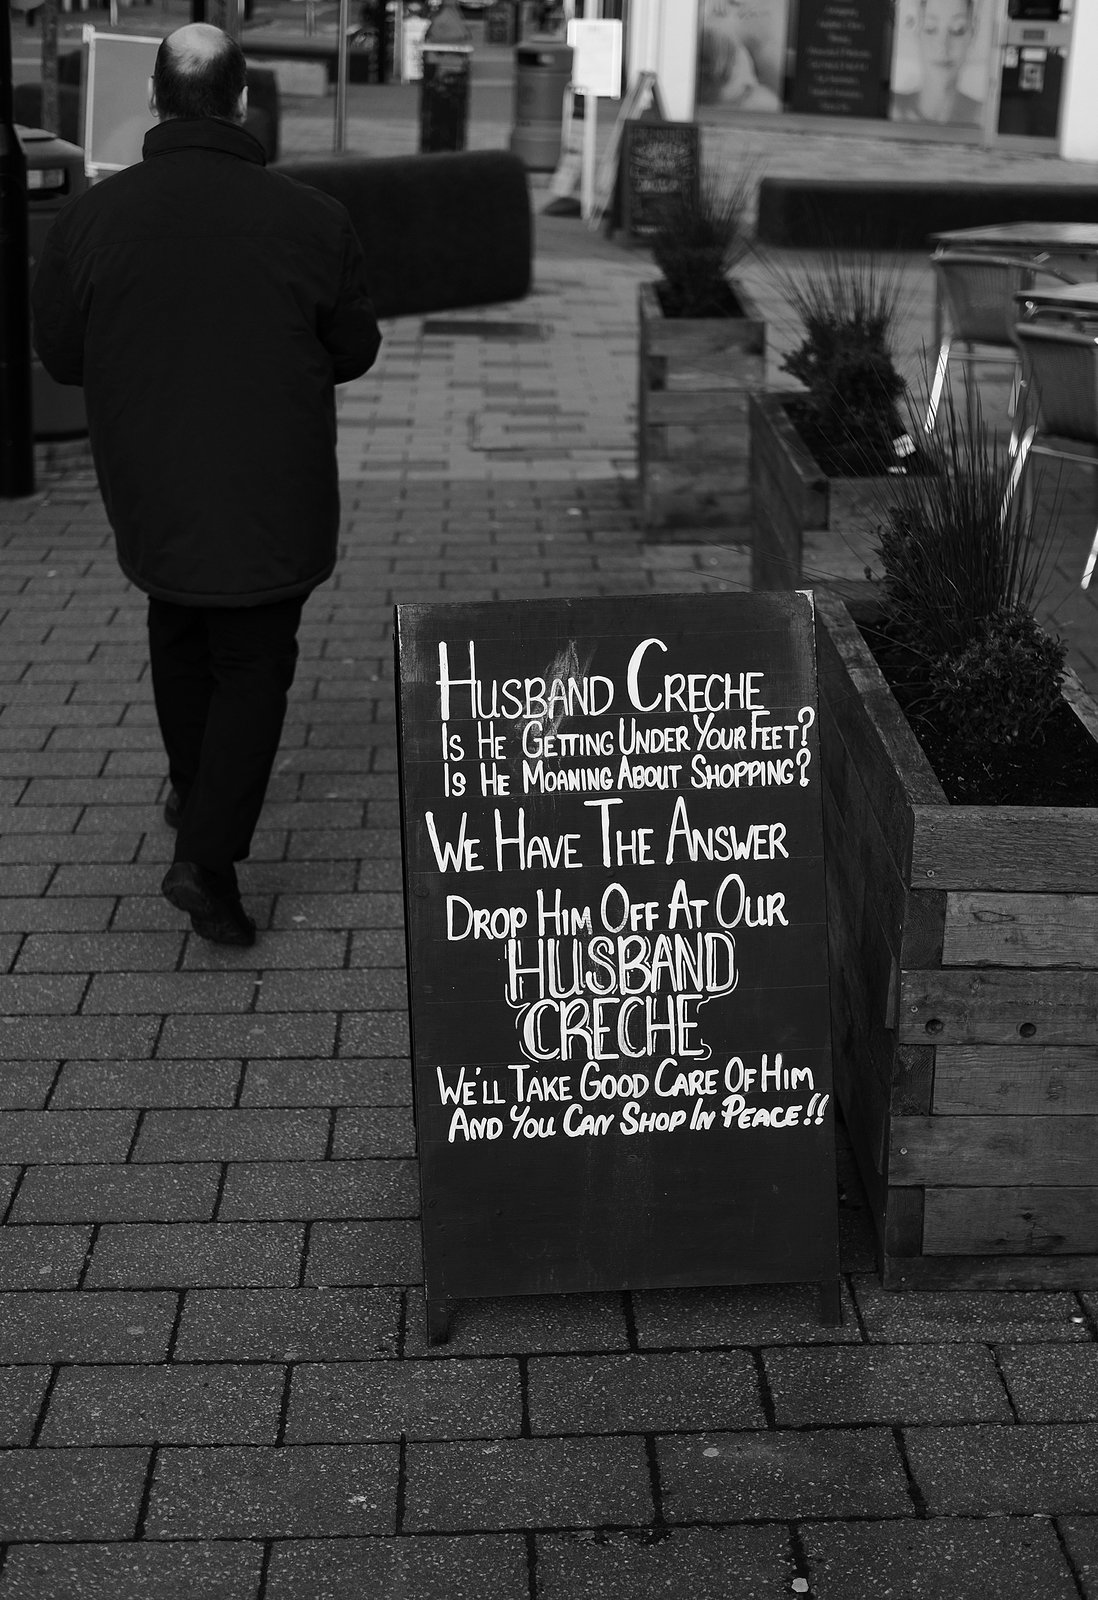 Husband Creche
Is He Getting Under Your Feet?
Is He Moaning About Shopping?
We Have The Answer
Drop Him Off At Our
HUSBAND
CRECHE
We'll Take Good Care Of Him
And You Can Shop In Peace!!